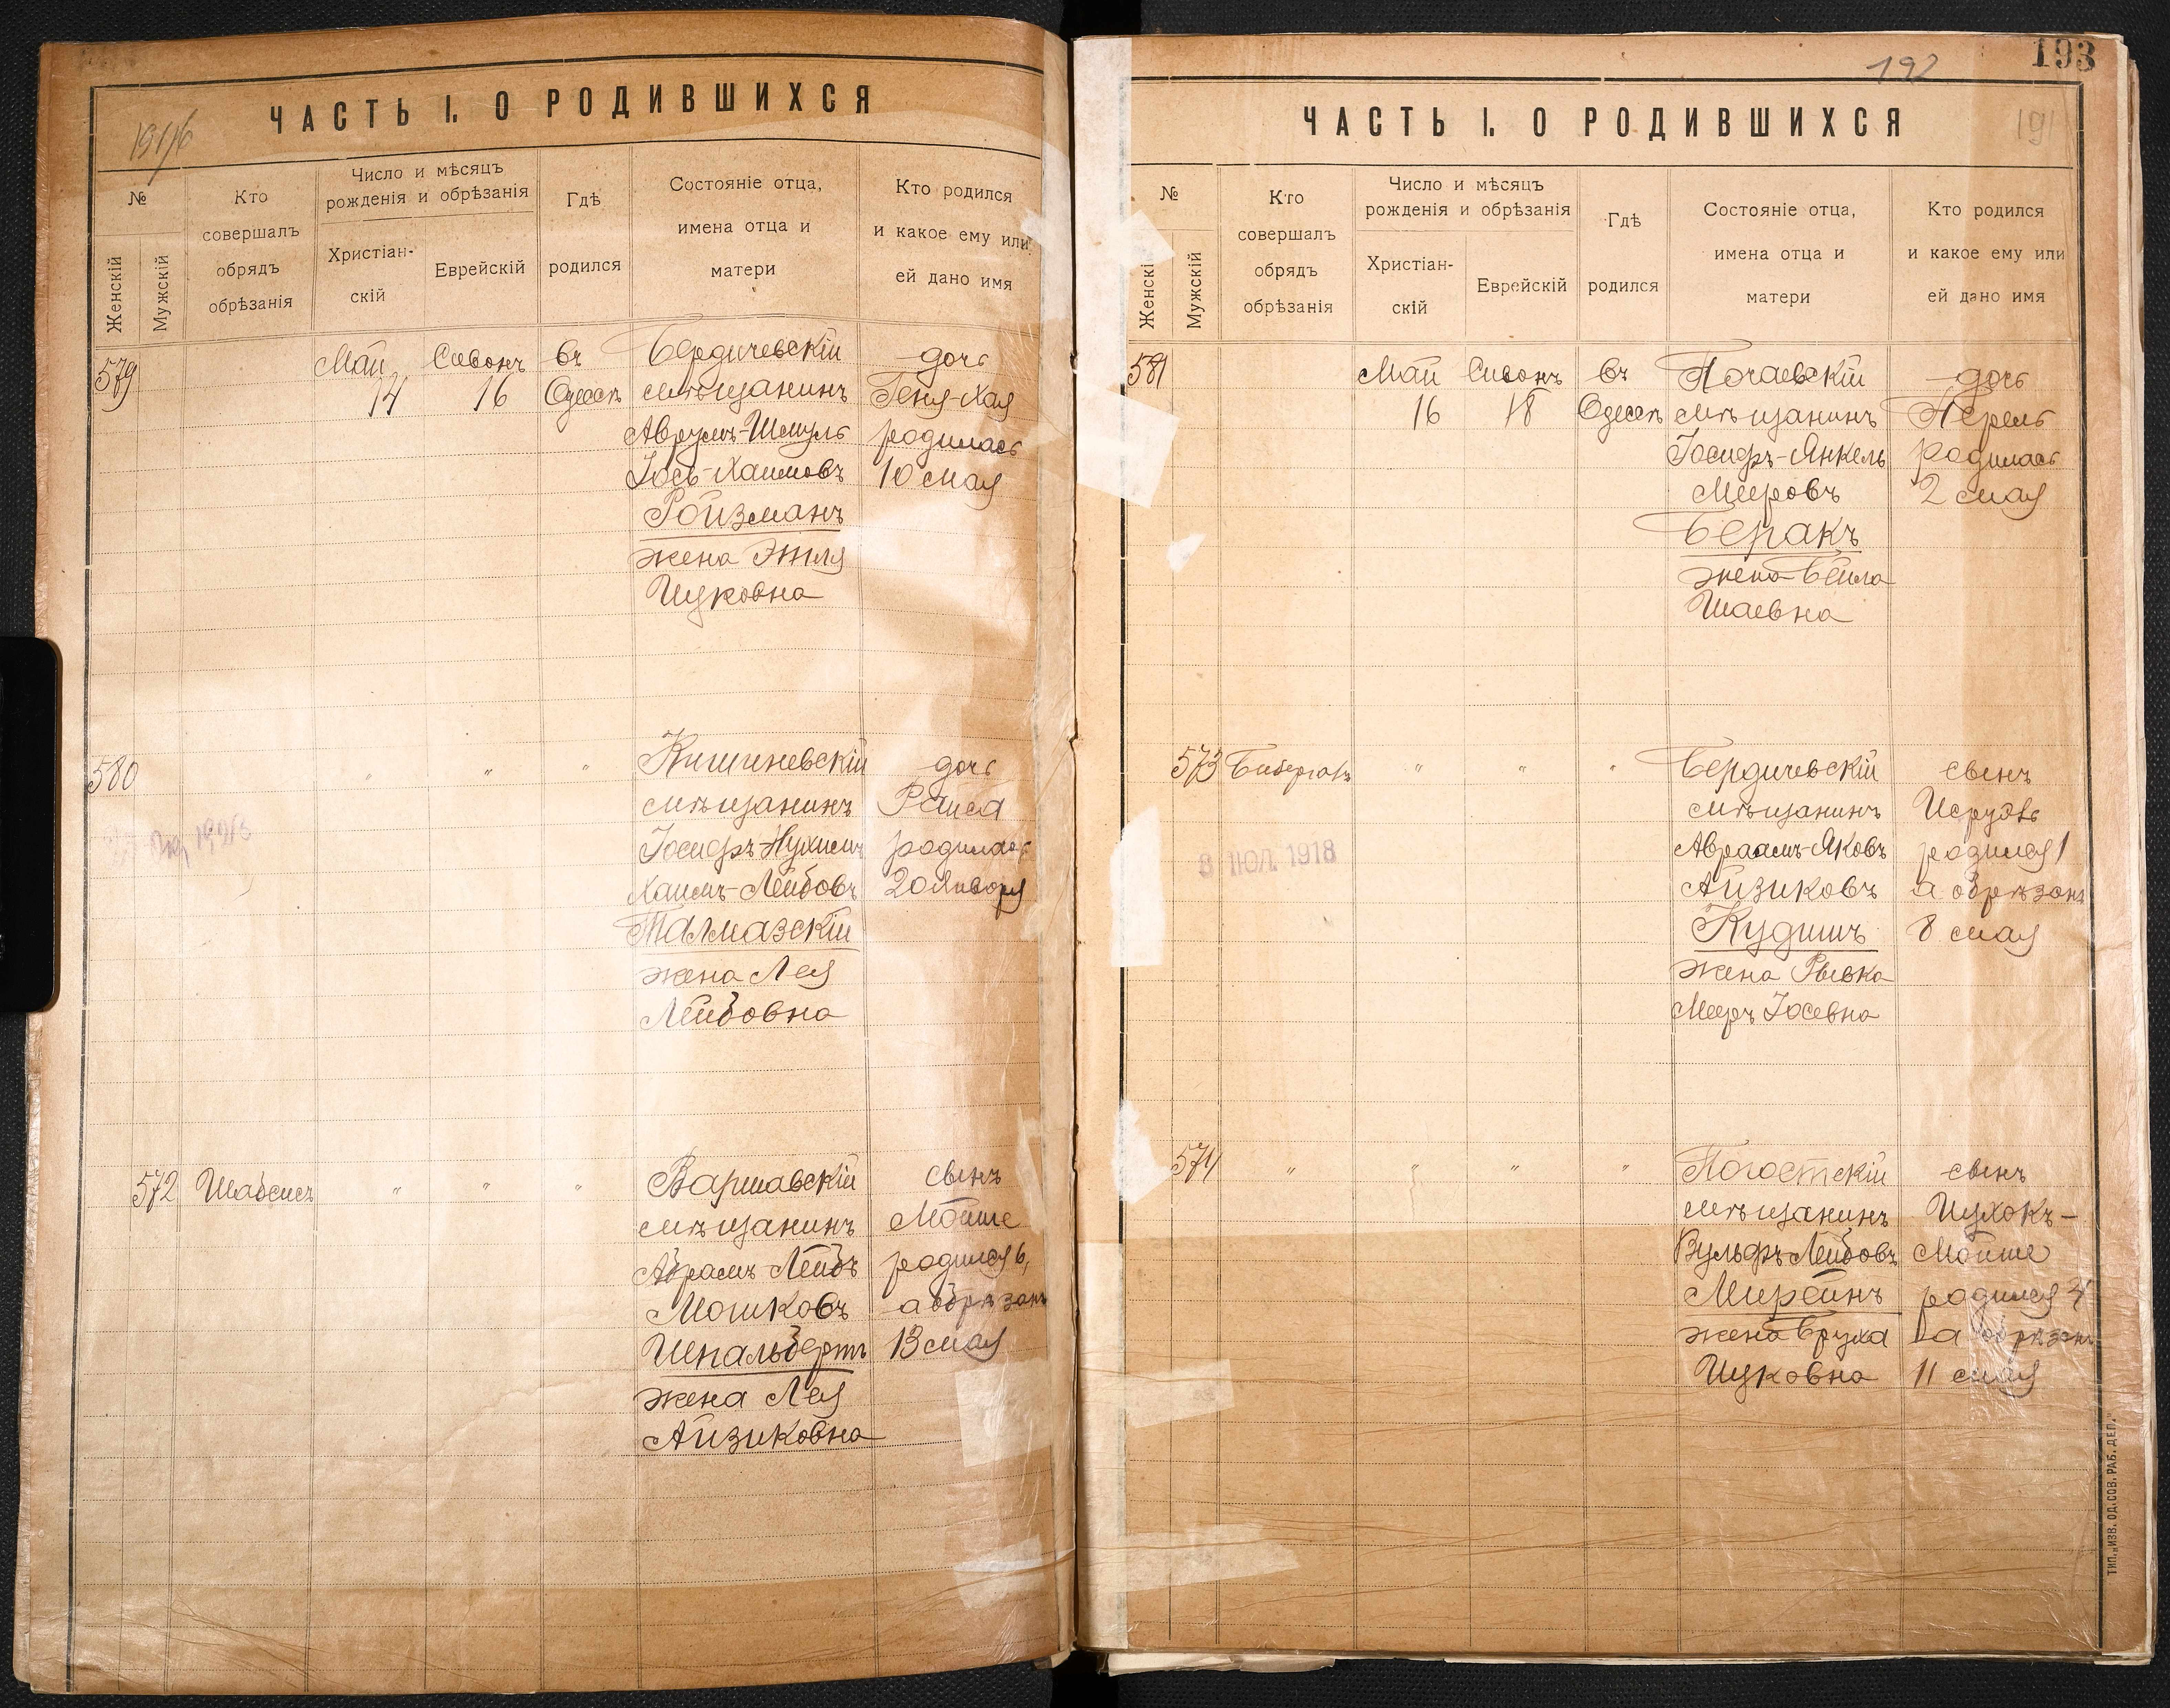 ЧАСТЬ I. О РОДИВШИХСЯ
1916
№
Женскій
Мужскій
Кто
совершалъ
обрядъ
обрѣзанія
Число и мѣсяцъ
рожденія и обрѣзанія
Христіан-
скій
Еврейскій
Гдѣ
родился
Состояніе отца,
имена отца и
матери
Кто родился
и какое ему или
ей дано имя
579
Май
14
Сивонъ
16
въ
Одессѣ
Бердичевскій
мѣщанинъ
Аврумъ-Шмуль
Іось-Хаимовъ
Ройзманъ
жена Этля
Ицковна
дочь
Геня-Хая
родилась
10 мая
580
"
"
"
Кишиневскій
мѣщанинъ
Іосифъ-Нухимъ
Хаимъ-Лейбовъ
Талмазскій
жена Лея
Лейбовна
дочь
Раиса
родилась
20 Января
572
Шабсисъ
"
"
"
Варшавскій
мѣщанинъ
Абрамъ-Лейбъ
Мошковъ
Шпальбертъ
жена Лея
Айзиковна
сынъ
Мойше
родился 6,
а обрѣзанъ
13 мая
192
193
191
ЧАСТЬ I. О РОДИВШИХСЯ
№
Женскій
Мужскій
Кто
совершалъ
обрядъ
обрѣзанія
Число и мѣсяцъ
рожденія и обрѣзанія
Христіан-
скій
Еврейскій
Гдѣ
родился
Состояніе отца,
имена отца и
матери
Кто родился
и какое ему или
ей дано имя
581
Май
16
Сивонъ
18
въ
Одессѣ
Почаевскій
мѣщанинъ
Іосифъ-Янкель
Мееровъ
Беракъ
жена Бейла
Шаевна
дочь
Перель
родилась
2 мая
573
Бибергалъ
"
"
"
Бердичевскій
мѣщанинъ
Авраамъ-Яковъ
Айзиковъ
Кудишъ
жена Рывка
Мееръ Іосевна
сынъ
родился 1
а обрѣзанъ
8 мая
8 ІЮЛ. 1918
574
"
"
"
"
Погостскій
мѣщанинъ
Вульфъ Лейбовъ
Мирейнъ
жена Бруха
Ицковна
сынъ
Ицхокъ-
Мойше
родился 4
а обрѣзанъ
11 мая
ТИП. „ИЗВ. ОД. СОВ. РАБ. ДЕП.“